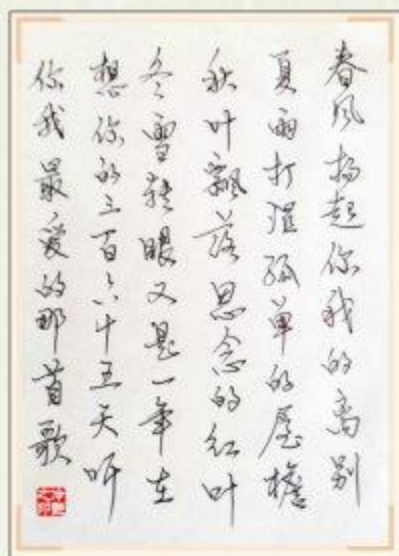 春风扬起你我的离别
夏雨打湿孤单的屋檐
秋叶飘落思念的红叶
冬雪转眼又是一年在
想你的三百六十五天听
你我最爱的那首歌